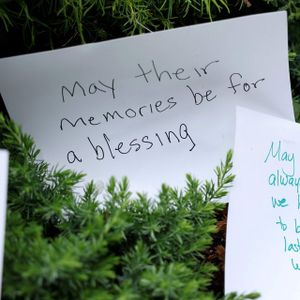 May their
memories be for
a blessing
May
alway
we
to b
last
w